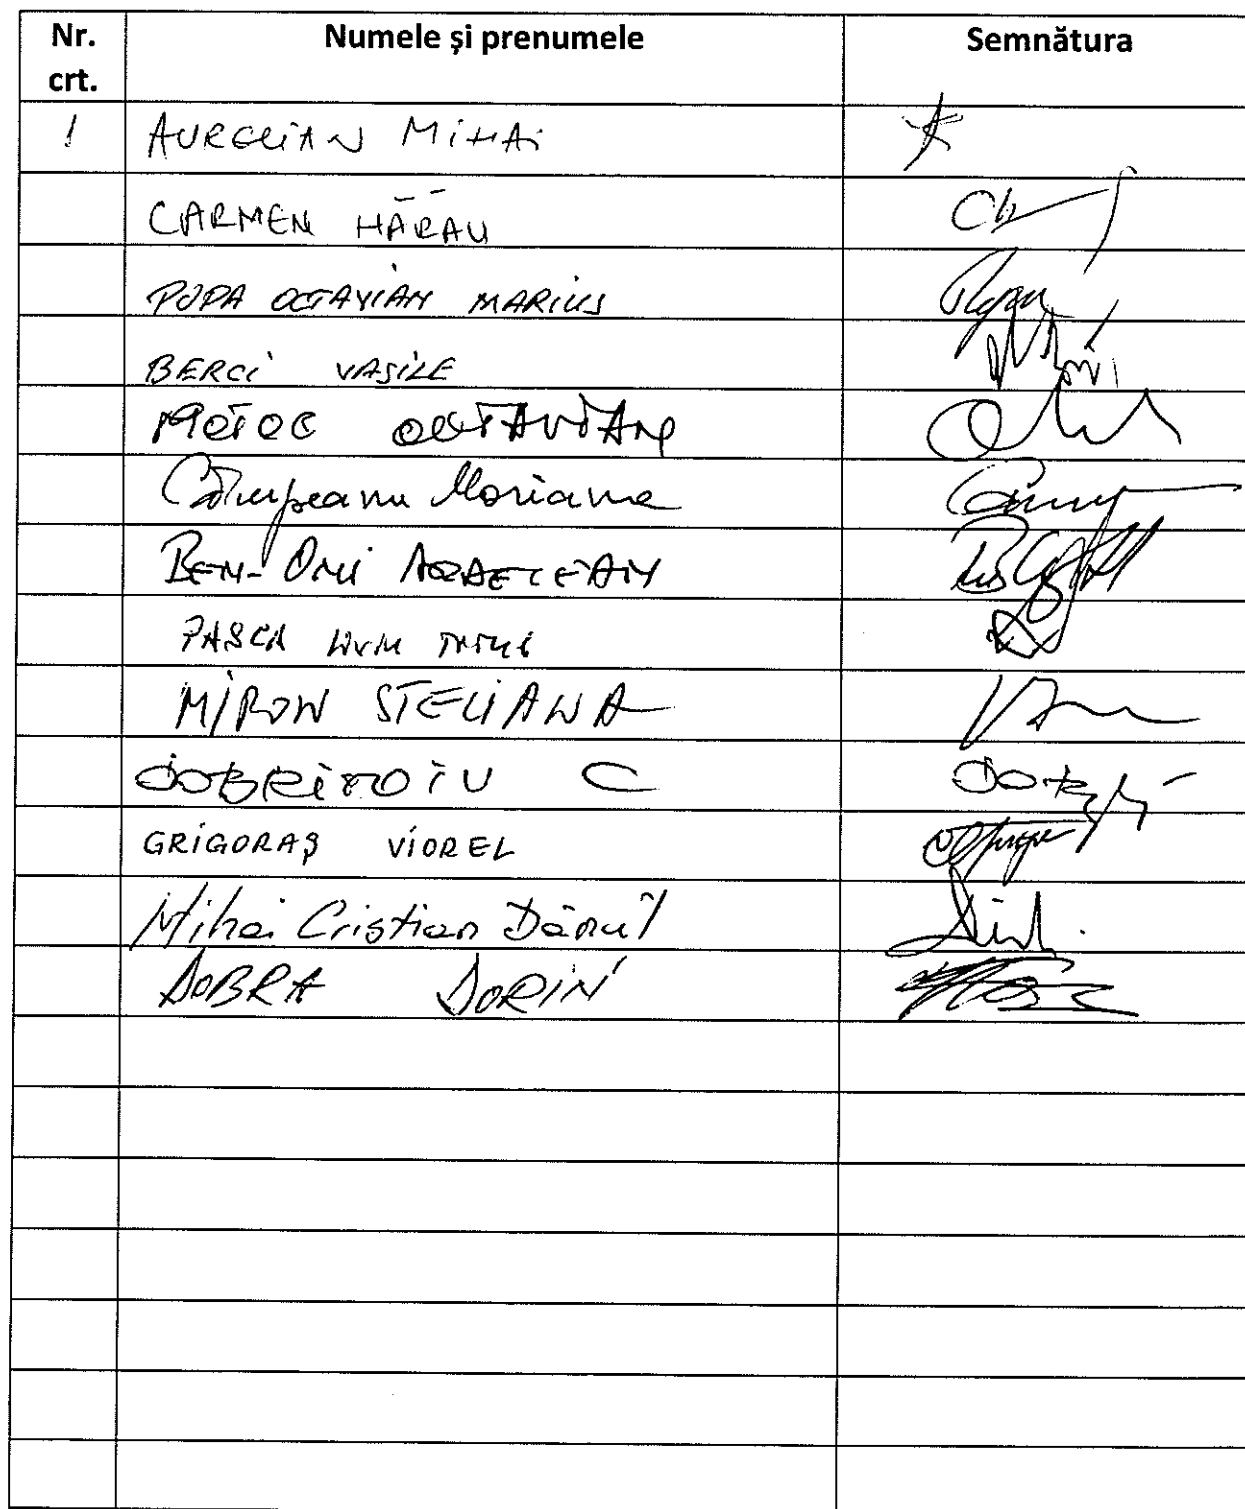 Nr. crt. Numele și prenumele Semnătura
1 AURELIAN MIHAI
CARMEN HĂRĂU
POPA OCTAVIAN MARIUS
BERCI VASILE
MOTOC OCTAVIAN
Câmpeanu Mariana
BEN-ONI ARDELEAN
PAȘCA LIVIU
MIRON STELIANA
DOBRINOIU C
GRIGORAȘ VIOREL
Mihai Cristian Dănuț
DOBRA DORIN